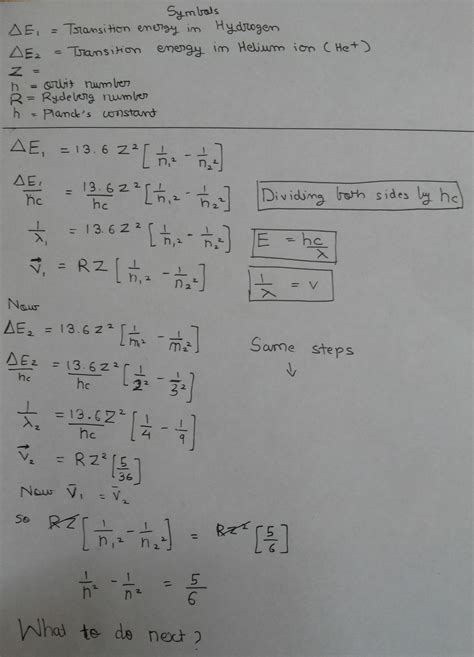 Symbols
ΔE₁ = Transition energy in Hydrogen
ΔE₂ = Transition energy in Helium ion (He+)
Z =
n = orbit number
R = Rydeberg number
h = Planck's constant
ΔE₁ = 13.6 Z² [1/n₁² - 1/n₂²]
ΔE₁/hc = 13.6 Z²/hc [1/n₁² - 1/n₂²] Dividing both sides by hc
1/λ₁ = 13.6 Z² [1/n₁² - 1/n₂²] E = hc/λ
v⃗₁ = RZ [1/n₁² - 1/n₂²] 1/λ = v
Now
ΔE₂ = 13.6 Z² [1/m₁² - 1/m₂²] Same steps
ΔE₂/hc = 13.6 Z²/hc [1/2² - 1/3²] ↓
1/λ₂ = 13.6 Z²/hc [1/4 - 1/9]
v⃗₂ = RZ² [5/36]
Now v̄₁ = v̄₂
so RZ [1/n₁² - 1/n₂²] = RZ² [5/6]
1/n² - 1/n² = 5/6
What to do next?